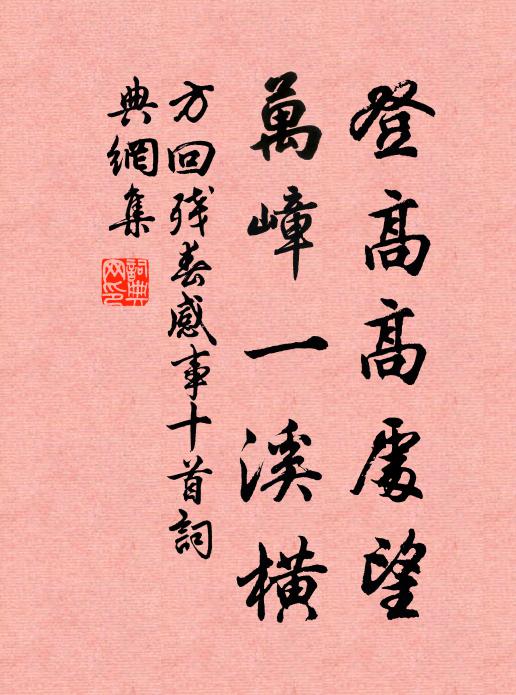 登高高處望
萬嶂一溪橫
方回殘春感事十首詞
典網集
詞典
網印